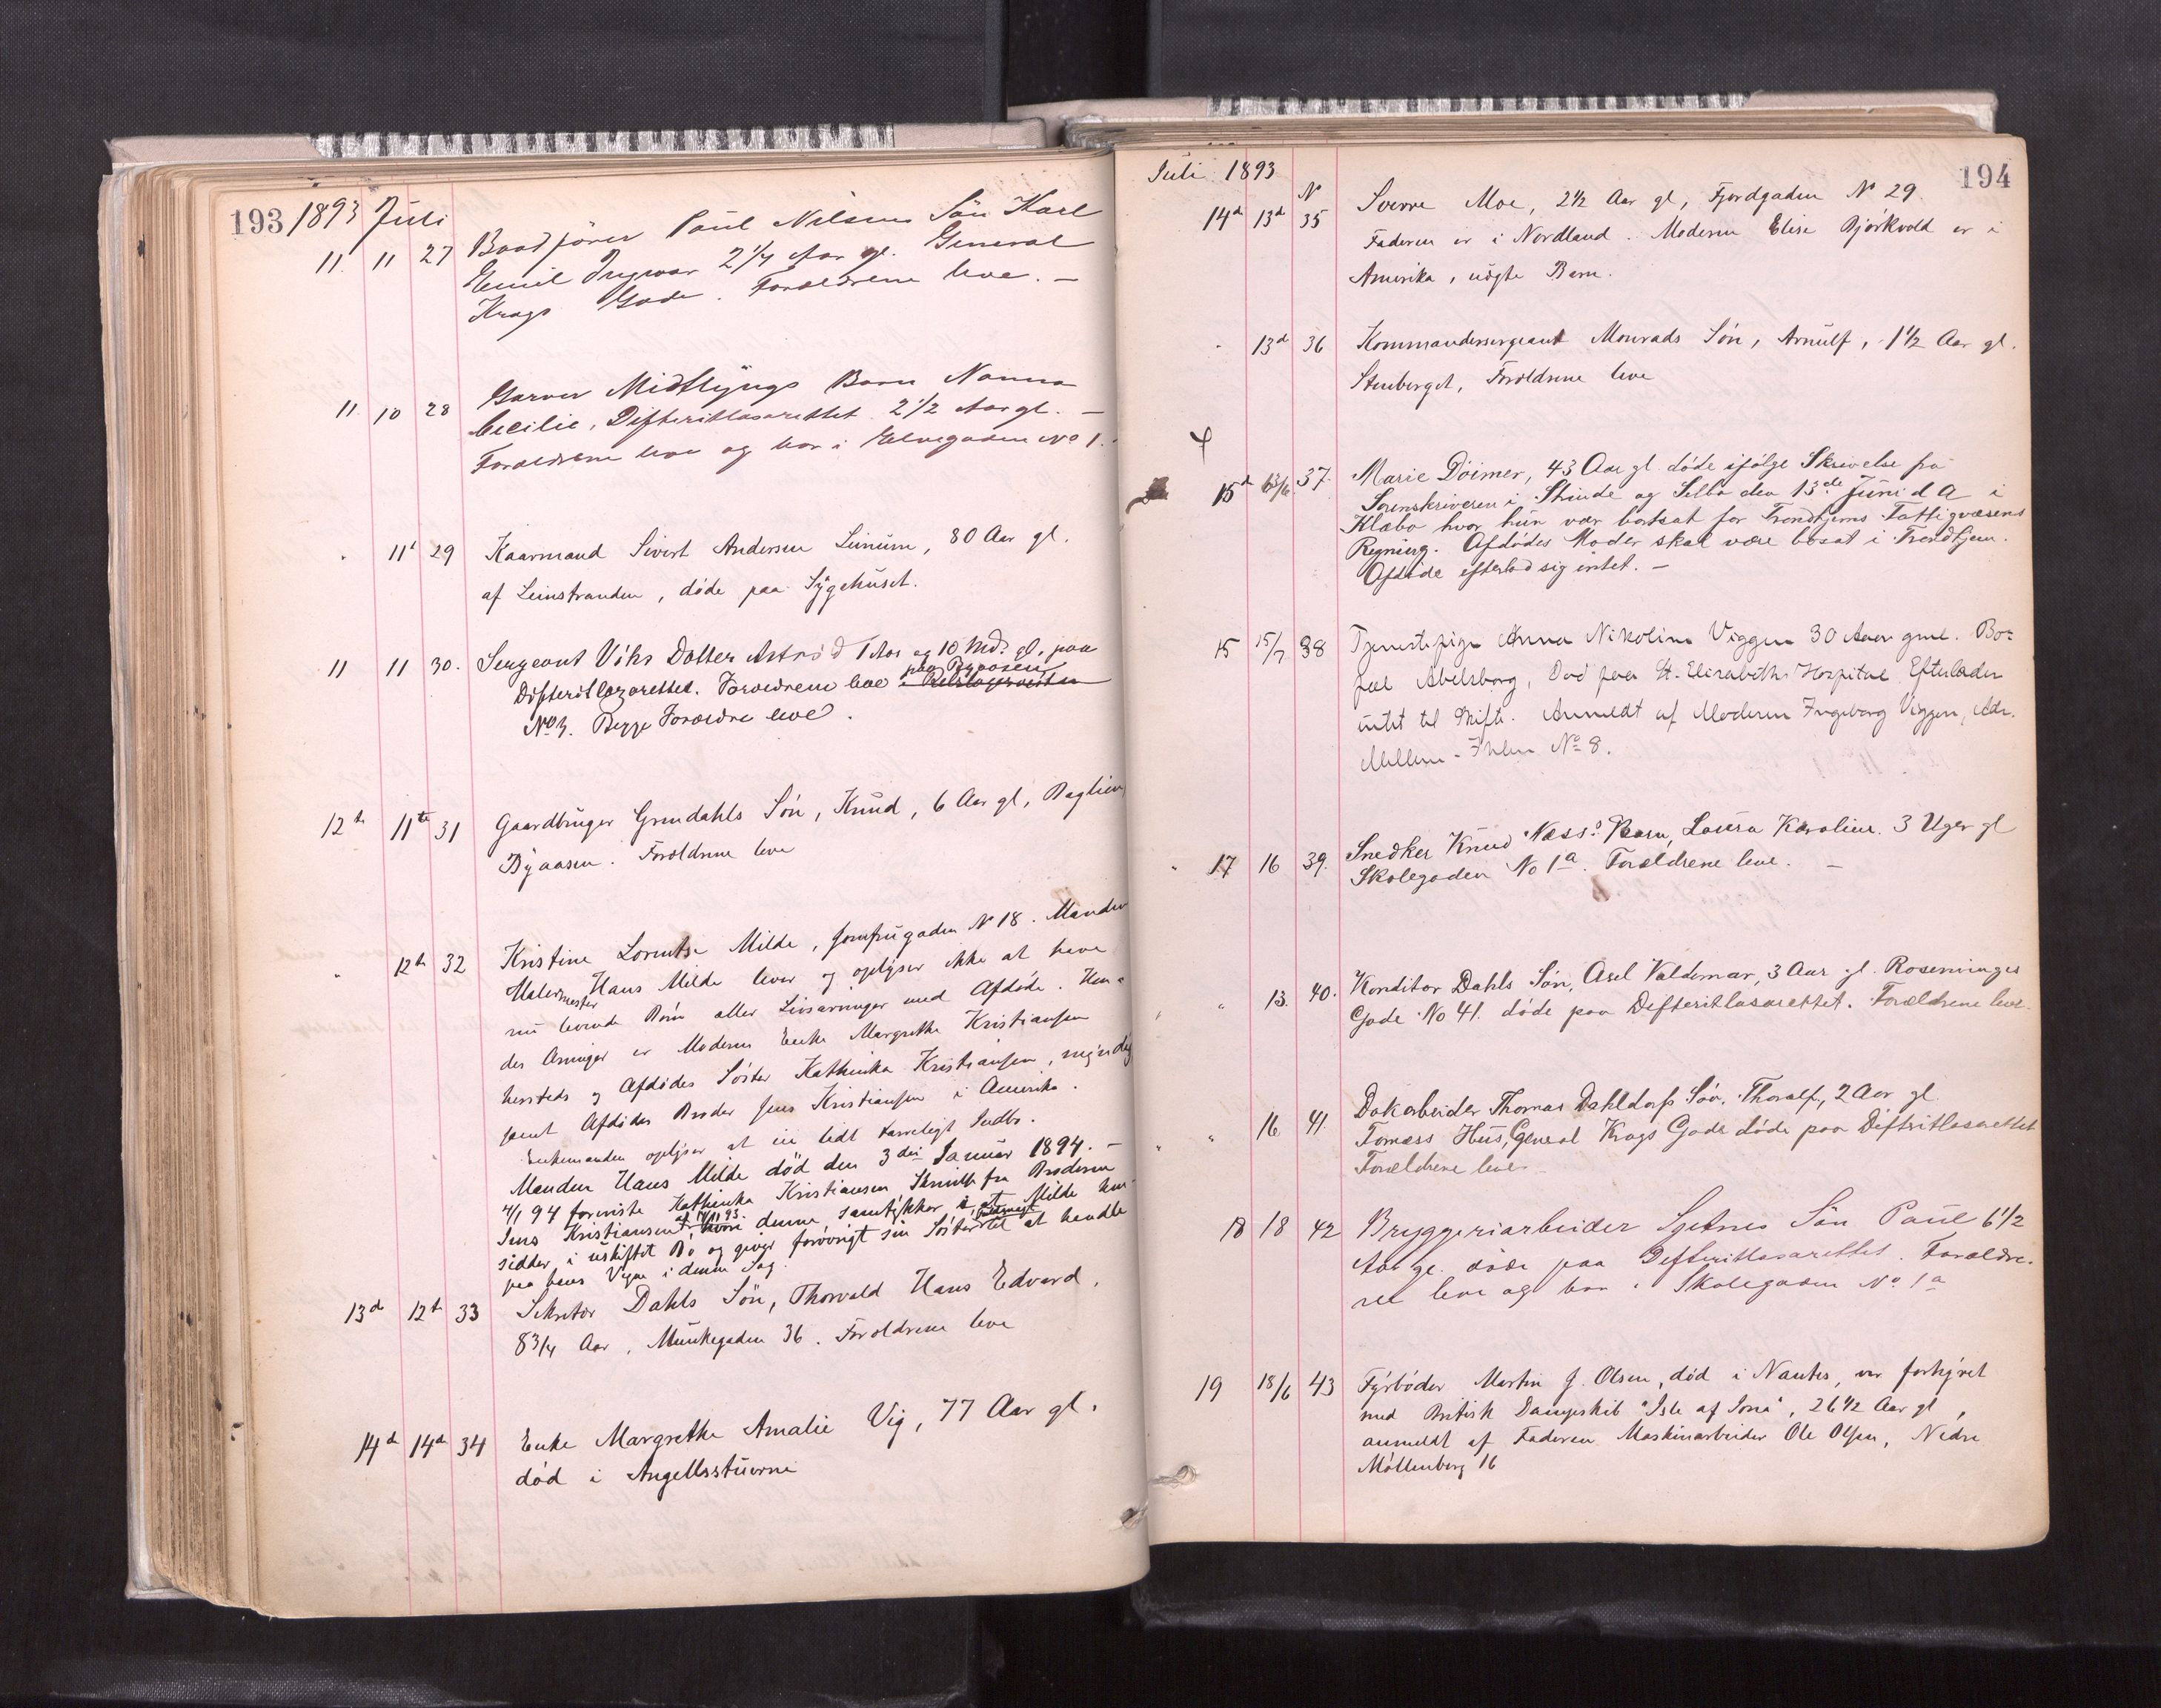 193 1893 Juli
11. 11 27 Baadfører Paul Nilsens Sön Karl
Emil Ingvar 2 1/4 Aar gl. General
Krags Gade. Forældrene leve. —
11. 10 28 Garver Midtlyngs Barn Nanna
Cecilie, Difteritlasarettet 2 1/2 Aar gl. —
Forældrene leve og bor i Elvegaden No 1.
" 11t 29 Kaarmand Sivert Andersen Leinum, 80 Aar gl.
af Leinstranden, døde paa Sÿgehuset.
11 11 30. Sergeant Viks Datter Astrid 1 Aar og 10 Md. gl. paa
Difteritlazarettet. Forældrene leve paa Byaasen
No 3. Begge Forældre leve.
12te 11te 31 Gaardbruger Grendahls Søn, Knud, 6 Aar gl,
Bÿaasen. Forældrene leve
" 12te 32 Kristine Lorentse Milde, Jomfrugaden No 18. Manden
Malermester Hans Milde lever og oplÿser ikke at have
nu levende Børn eller Livsarvinger med Afdøde. Hen-
des Arvinger er Moderen Enke Margrethe Kristiansen
hersteds og Afdødes Søster Kathinka Kristiansen, mÿndig
samt Afdødes Broder Jens Kristiansen i Amerika.
Enkemanden oplÿser at eie lidt tarveligt Indbo.
Manden Hans Milde död den 3die Januar 1894. —
4/1 94 foreviste Kathinka Kristiansen Skrivelse fra Broderen
Jens Kristiansen denne samtÿkker i, at Milde hen-
sidder i uskiftet Bo og giver forøvrigt sin Søster til at handle
paa hans Vegne i denne Sag.
13d 12te 33 Sekretær Dahls Sön, Thorvald Hans Edvard,
8 3/4 Aar, Munkegaden 36. Forældrene leve
14d 14d 34 Enke Margrethe Amalie Vig, 77 Aar gl.
død i Angellsstuerne
Juli 1893 194
N
14d 13d 35 Sverre Moe, 2 1/2 Aar gl, Fjordgaden No 29.
Faderen er i Nordland. Moderen Elise Bjørkvold er i
Amerika, uægte Barn.
" 13d 36 Kommandersergeant Monrads Søn, Arnulf, 1 1/2 Aar gl.
Stenberget, Forældrene leve
15d 13/6 37 Marie Döimer, 43 Aar gl. døde ifølge Skrivelse fra
Sorenskriveren i Strinde og Selbo den 13de Juni d A i
Klæbo hvor hun var bortsat for Trondhjems Fattigvæsens
Regning. Afdødes Moder skal være bosat i Trondhjem.
Afdøde efterlod sig intet. —
15 15/7 38 Tjenestepige Anna Nikoline Viggen 30 Aar gml. Bo-
pæl Abelsborg, Død paa St. Elisabeths Hospital Efterlader
intet til Skifte. Anmeldt af Moderen Ingeborg Viggen, Adr.
Mellem-Ihlen No 8.
" 17 16 39. Snedker Knud Næss' Barn, Laura Karoline. 3 Uger gl
Skolegaden No 1a. Forældrene leve. —
" 13. 40. Konditor Dahls Søn, Axel Valdemar, 3 Aar gl. Rosenvinges
Gade No 41. døde paa Defteritlasarettet. Forældrene leve.
" 16 41 Dokarbeider Thomas Dahldorfs Søn, Thoralf, 2 Aar gl.
Tomæss Hus, General Krags Gade døde paa Difteritlasarettet
Forældrene leve.
18 18 42 Bryggeriarbeider Sjetnes Sön Paul 6 1/2
Aar gl. døde paa Defteritlasarettet. Forældre-
ne leve og bor i Skolegaden No 1a
19 18/6 43 Fÿrbøder Martin J. Olsen, død i Nantes, var forhÿret
med Britisk Dampskib "Isle of Iona", 26 1/2 Aar gl,
anmeldt af Faderen Maskinarbeider Ole Olsen, Nedre
Møllenberg 16